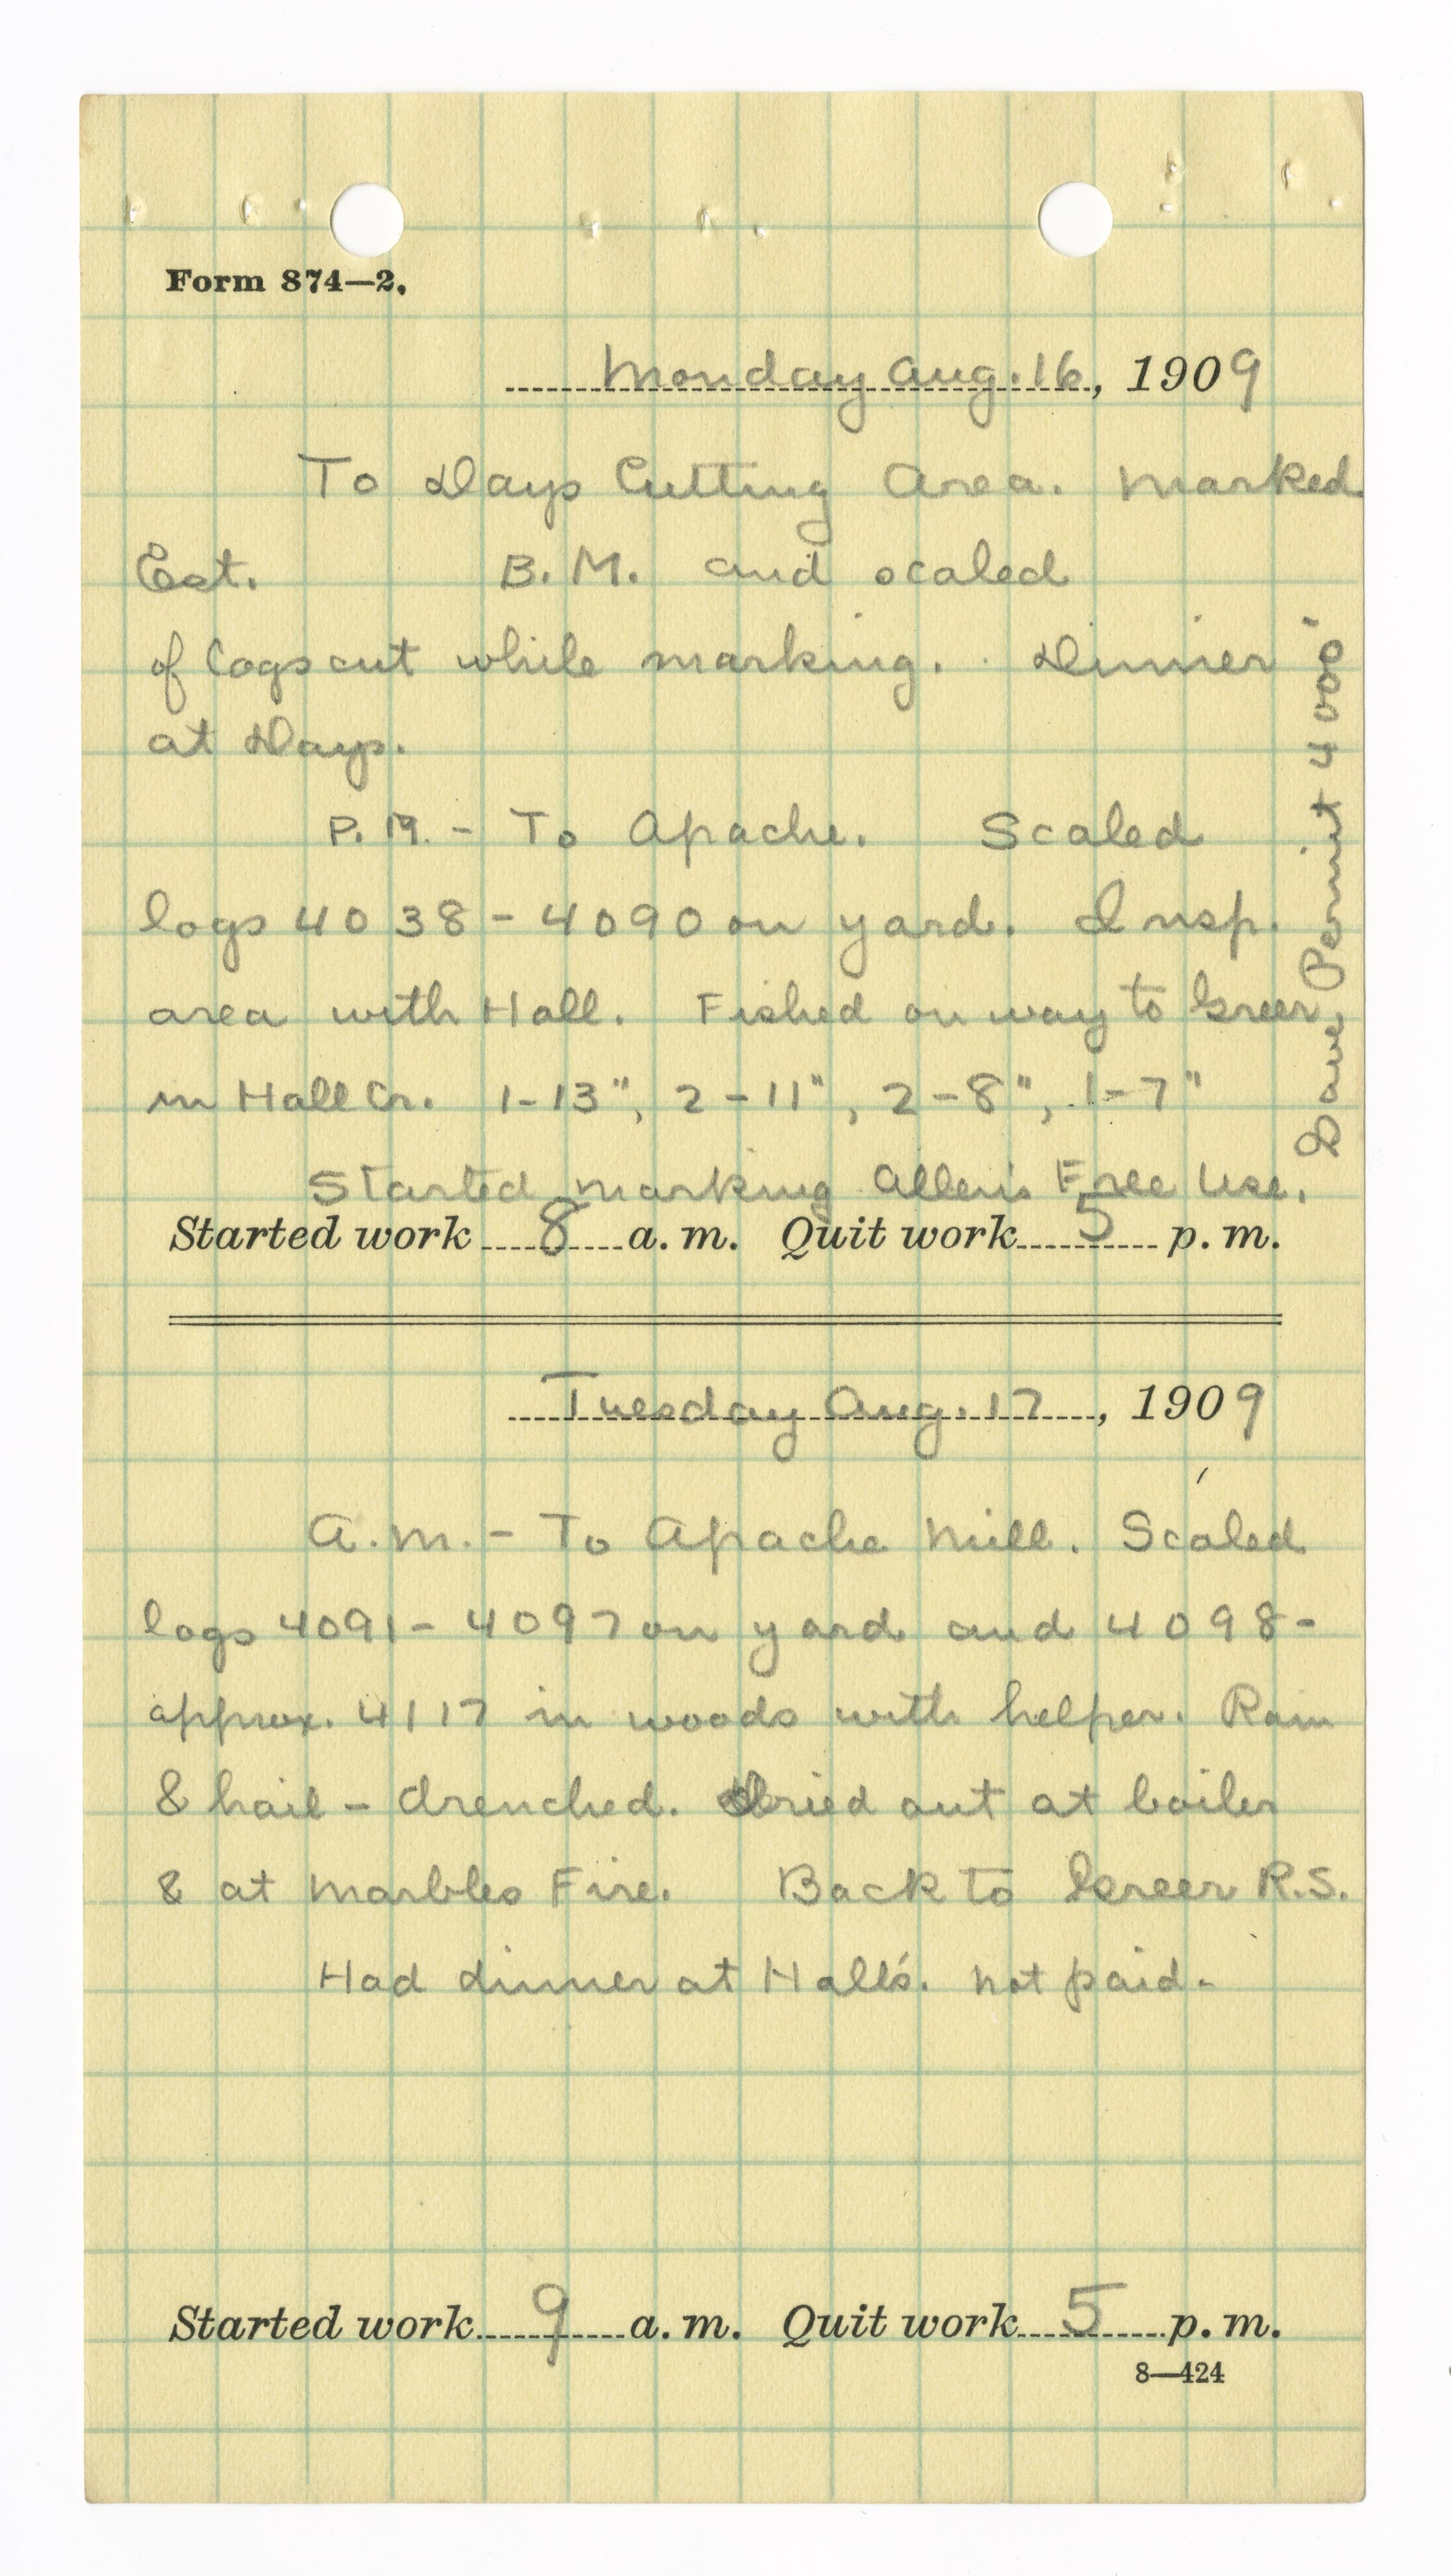 Form 874—2.
Monday Aug. 16, 1909
To Days Cutting Area. Marked
Est. B.M. and scaled
of logs cut while marking. Dinner
at Days.
P.M. - To Apache. Scaled
logs 4038-4090 on yard. Insp.
area with Hall. Fished on way to Greer
in Hall Cr. 1-13", 2-11", 2-8", 1-7"
Started marking Allen's Free Use.
Permit 4000
Started work 8 a.m. Quit work 5 p.m.
Tuesday Aug. 17, 1909
A.M. - To Apache Mill. Scaled
logs 4091-4097 on yard and 4098-
approx. 4117 in woods with helper. Rain
& hail - drenched. Dried out at boiler
& at Marbles Fire. Back to Greer R.S.
Had dinner at Hall's. Not paid.
Started work 9 a.m. Quit work 5 p.m.
8—424